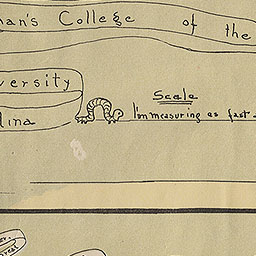 man's College of the
versity
lina
Scale
I'm measuring as fast